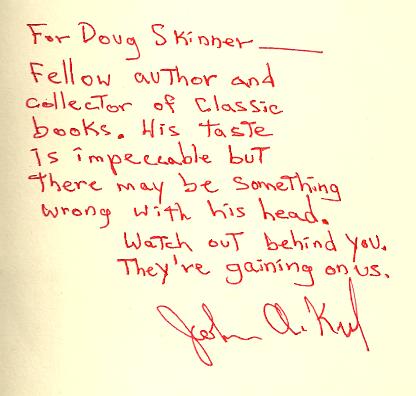 For Doug Skinner
Fellow author and
collector of classic
books. His taste
is impeccable but
there may be something
wrong with his head.
Watch out behind you.
They're gaining on us.
John A. Keel